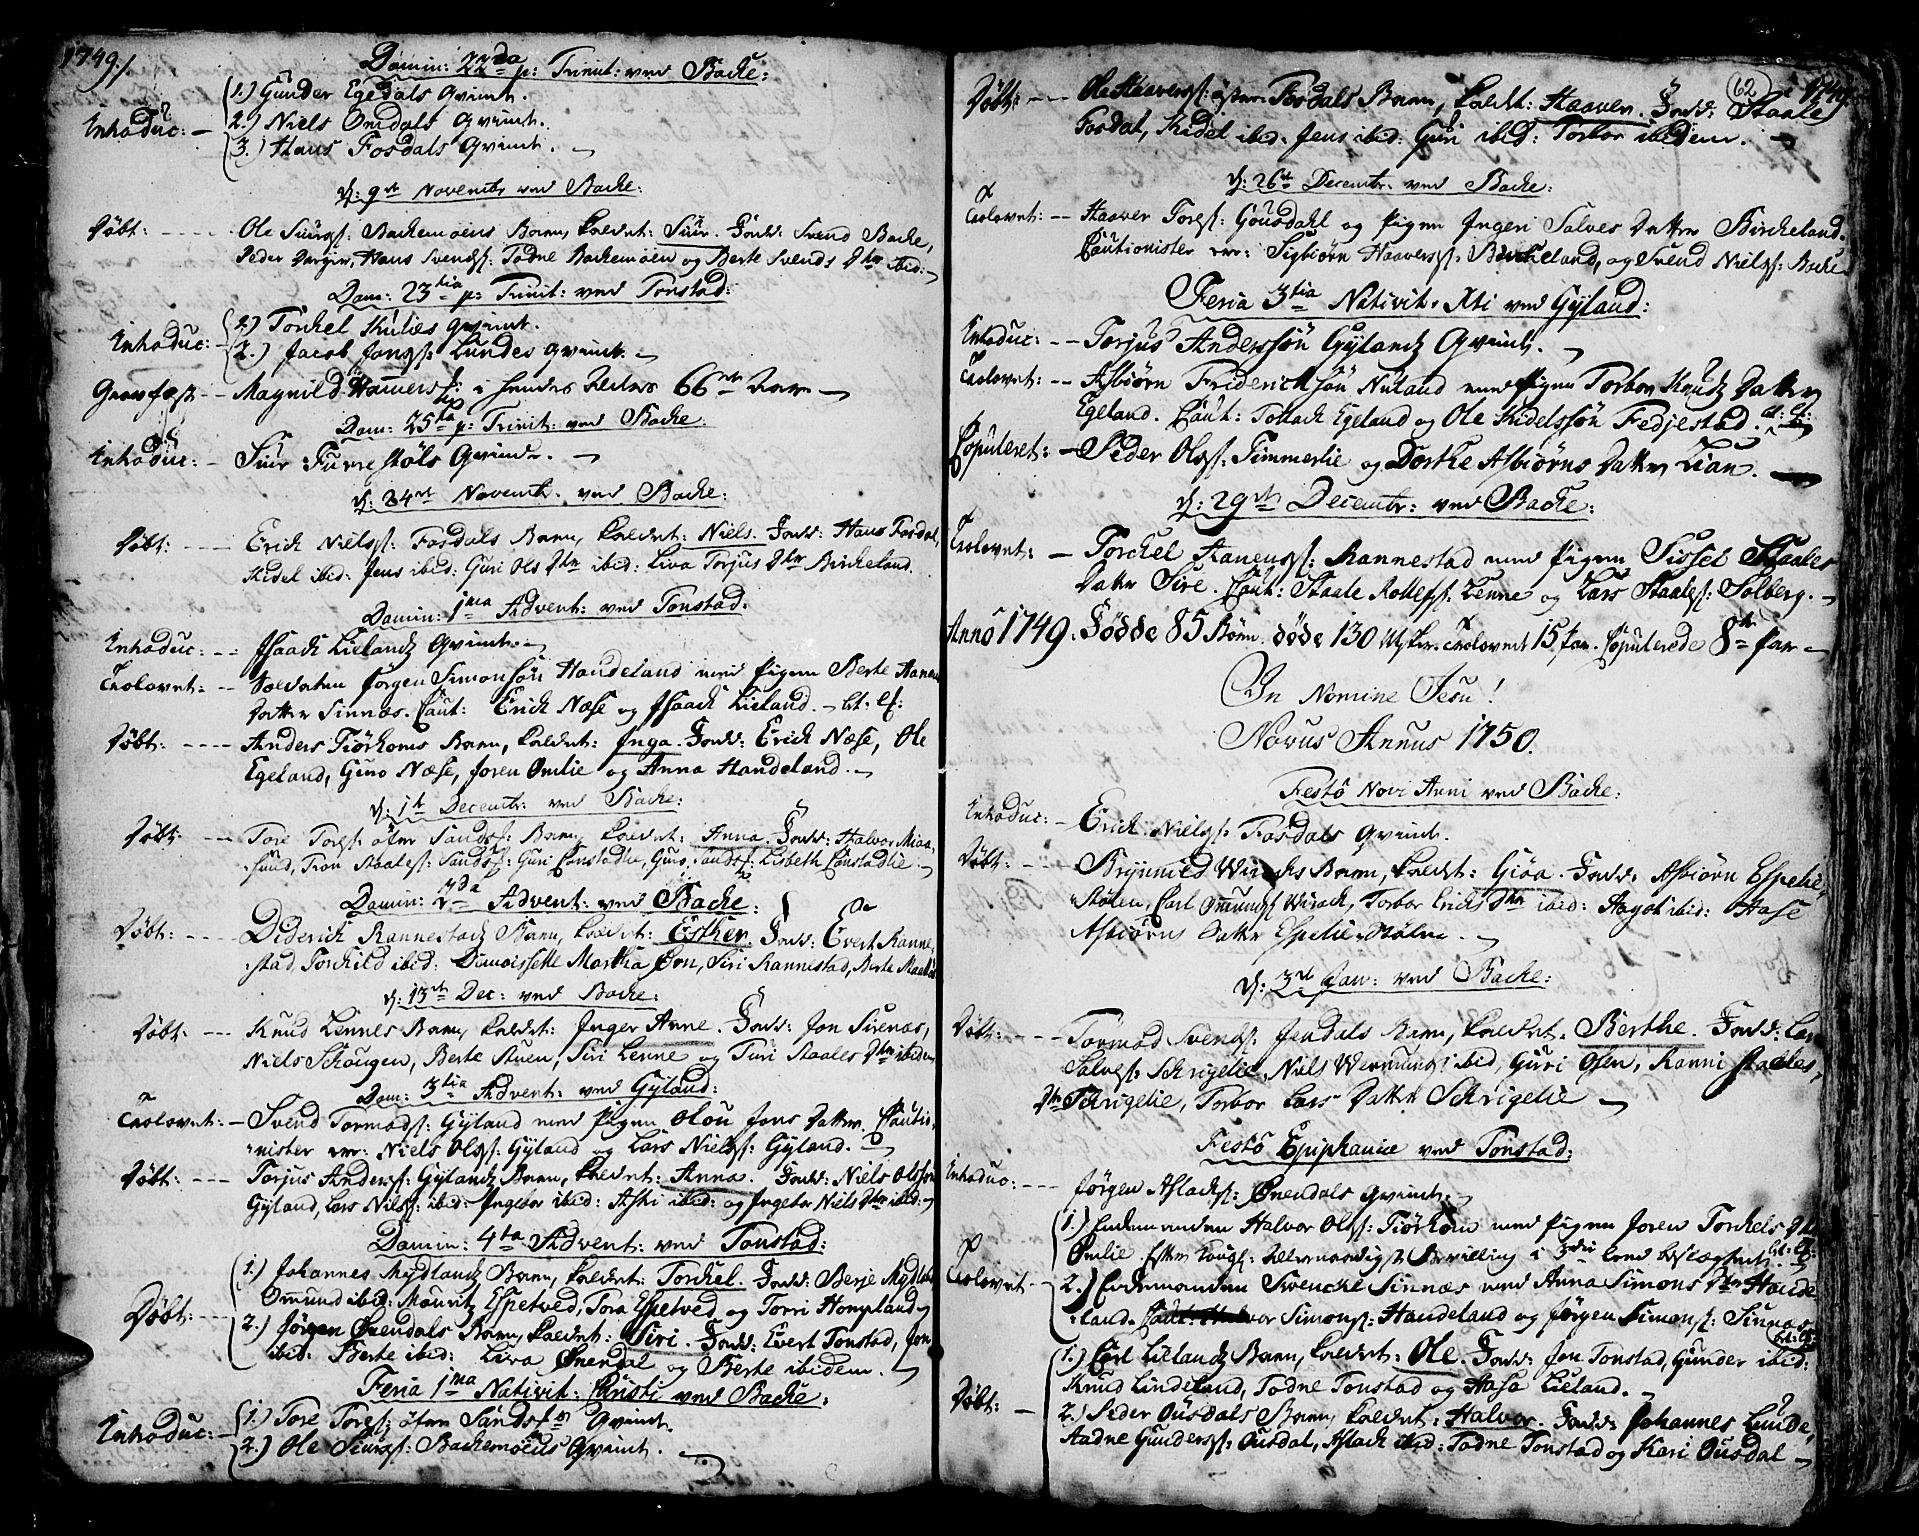 1749 /.
Domin: 22da p: Trinit: ved Backe:
Introduc: — 1.) Gunder Egedals Qvinde.
2.) Niels Omdals Qvinde.
3.) Hans Fosdals Qvinde.
d: 9de Novembr ved Backe:
Døbt: ---- Ole Siurss: Backemoens Barn, kaldet: Siur. Fadd: Svend Backe,
Peder Hans Svendss: Tadne Backemoen og Berte Svends Dtr ibid:
Dom: 23tia p: Trinit: ved Tonstad:
Introduc: 1.) Torkel Qvinde.
2.) Jacob Jonss: Lundes Qvinde.
Gravfæst -- Magnild i hendes Alders 66de Aar
Dom: 25ta p: Trinit: ved Backe:
Introduc: — Siur Furrestøls Qvinde.
d: 24de Novembr. ved Backe:
Døbt: ---- Erick Nielss: Fosdals Barn, kaldet: Niels. Fadd: Hans Fosdal,
Kidel ibid: Jens ibid: Guri Ols Dtr ibid: Liva Torjus Dtr Birckeland.
Domin: 1ma Advent: ved Tonstad:
Introduc: -- Isaach Lielands Qvinde.
Trolovet: -- Soldaten Jørgen Simonsøn Haudeland med Pigen Berte Aanen
Datter Sinnæs. Caut: Erick Næse og Isaach Lieland.
Døbt: ---- Anders Tiørhoms Barn, kaldet: Inga. Fadd: Erick Næse, Ole
Egeland, Guro Næse, Joren Omlie og Anna Haudeland.
d: 1te Decembr: ved Backe:
Døbt: --- Tore Torss: Barn, kaldet: Anna. Fadd: Halvor Mia-
sund, Tron Staaless: Guri Lisbeth
Domin: 2da Advent: ved Backe:
Døbt: ---- Diderich Rannestads Barn, kaldet: Esther. Fadd: Evert Ranne-
stad, Torchild ibid: Demoiselle Martha Siri Rannestad, Berte
d: 13de Dec: ved Backe:
Døbt: --- Knud Lennes Barn, kaldet: Inger Anne. Fadd: Jon Sirenæs,
Niels Schougen, Berte Stuen, Siri Lenne og Turi Staales Dtr ibidem
Dom: 3tia Advent: ved Gyland:
Trolovet: — Svend Tormods: Gyland med Pigen Olou Jens Datter. Cautio-
nister ere: Niels Olss: Gyland og Lars Nielss: Gyland.
Døbt: --- Torjus Anderss: Gylands Barn, kaldet: Anna. Fadd: Niels Olssøn
Gyland, Lars Nielss: ibid: Ingebor ibid: Astri ibid: og Ingebor Niels Dtr ibid:
Domin: 4ta Advent: ved Tonstad:
Døbt: --- 1.) Johannes Mydlands Barn, kaldet: Torckel. Fadd: Berje
Ommund ibid: Mauritz Espetved, Tora Espetved og Torri Hompland
2.) Jørgen Ønendals Barn, kaldet: Siri. Fadd: Evert Tonstad, Jon
ibid: Berte ibid: Liva Ønendal og Berte ibidem.
Feria 1ma Nativit: Christi ved Backe:
Introduc: — 1.) Tore Torss: Qvinde.
2.) Ole Siurss: Backemoens Qvinde.
62
1749.
Døbt: ---- Ole Haaverss: Fosdals Barn, kaldet: Haaver. Fadd: Staale
Fosdal, Kidel ibid: Jens ibid: Guri ibid: Torbor ibidem.
d: 26de Decembr: ved Backe:
Trolovet: -- Haaver Torss: Gousdahl og Pigen Ingeri Salves Datter Birckeland.
Cautionister ere: Sigbiørn Haaverss: Birckeland, og Svend Nielss: Backe
Feria 3tia Nativit: Xti ved Gyland:
Introduc: -- Torjus Anderssøn Gylands Qvinde.
Trolovet: -- Asbiørn Friderichsøn Nuland med Pigen Torbor Knuds Datter
Egeland. Caut: Tollack Egeland og Ole Kidelssøn Fedjestad.
Copuleret: — Peder Olss: Timmerlie og Dorthe Asbiørns Datter Lian.
d: 29de Decembr: ved Backe:
Trolovet: — Torckel Aanenss: Rannestad med Pigen Sissel Staales
Datter Sire. Caut: Staale Rollefss: Lenne og Lars Staaless: Solberg.
Anno 1749. Fødde 85 Børn. døde 130 Trolovet 15 Par. Copulerede 8te Par
In Nomine Jesu!
Novus Annus 1750.
Festo Novi Anni ved Backe:
Introduc: — Erick Nielss: Fosdals Qvinde.
Døbt: --- Brynnild Wiracks Barn, kaldet: Giøa. Fadd: Asbiørn Espelie-
Stølen, Carl Ommunds: Wirack, Torbor Ericks Dtr ibid: Aagot ibid: Aase
Asbiørns Datter Espelie-Stølen.
d: 3de Jan: ved Backe:
Døbt: ---- Tormod Svendss: Jendals Barn, kaldet: Berthe. Fadd: Lars
Salvess: Schrigelie, Niels ibid, Guri Osen, Ranni Staales
Dtr Schrigelie, Torbor Lars Datter Schrigelie
Festo Epiphaniæ ved Tonstad:
Introduc: --- Jørgen Aslachs: Ønendals Qvinde.
Trolovet -- 1.) Enckemanden Halvor Olss: Tiørhom med Pigen Joren Torkels Dtr
Omlie. Efter Kongl: Allernaadigst Bevilling i 3die Leed beslægtet.
2.) Enckemanden Svencke Sinnæs med Anna Simons Dtr Haude-
land. Simons: Haudeland og Jørgen Simons: Sinnæs
Døbt: — 1.) Carl Lielands Barn, kaldet: Ole. Fadd: Jon Tonstad, Gunder ibid:
Knud Lindeland, Tadne Tonstad og Aasa Lieland.
2.) Peder Ousdals Barn, kaldet: Halvor. Fadd: Johannes Lunde,
Aadne Gunderss: Ousdal, Aslach ibid: Tadne Tonstad og Kari Ousdal